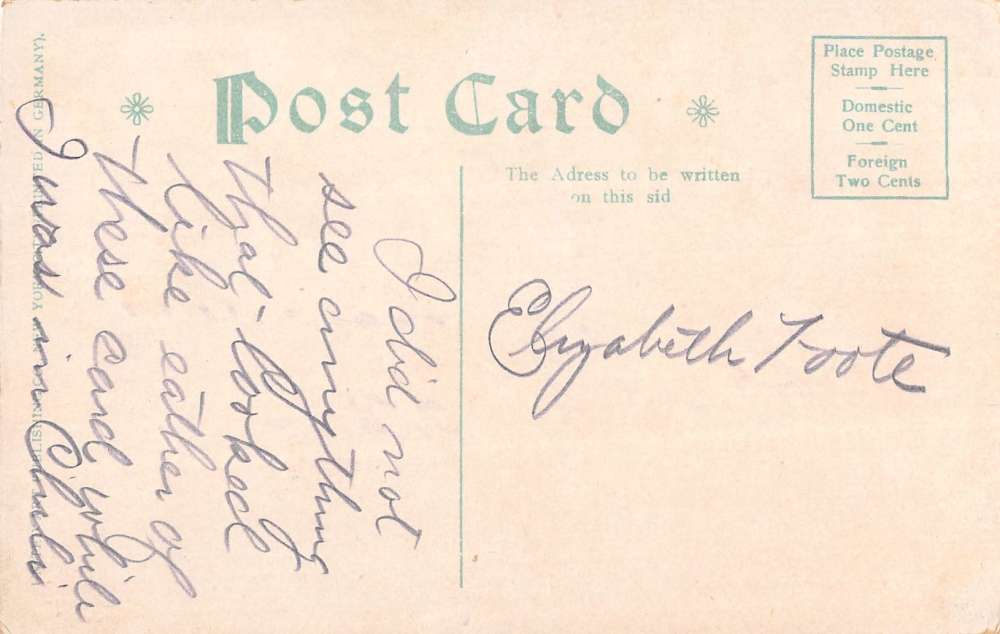 Post Card
Place Postage
Stamp Here
Domestic
One Cent
Foreign
Two Cents
The Adress to be written
on this sid
Elizabeth Foote
I did not
see anything
that looked
like eather of
these card while
I was in
YORK
ED IN GERMANY).